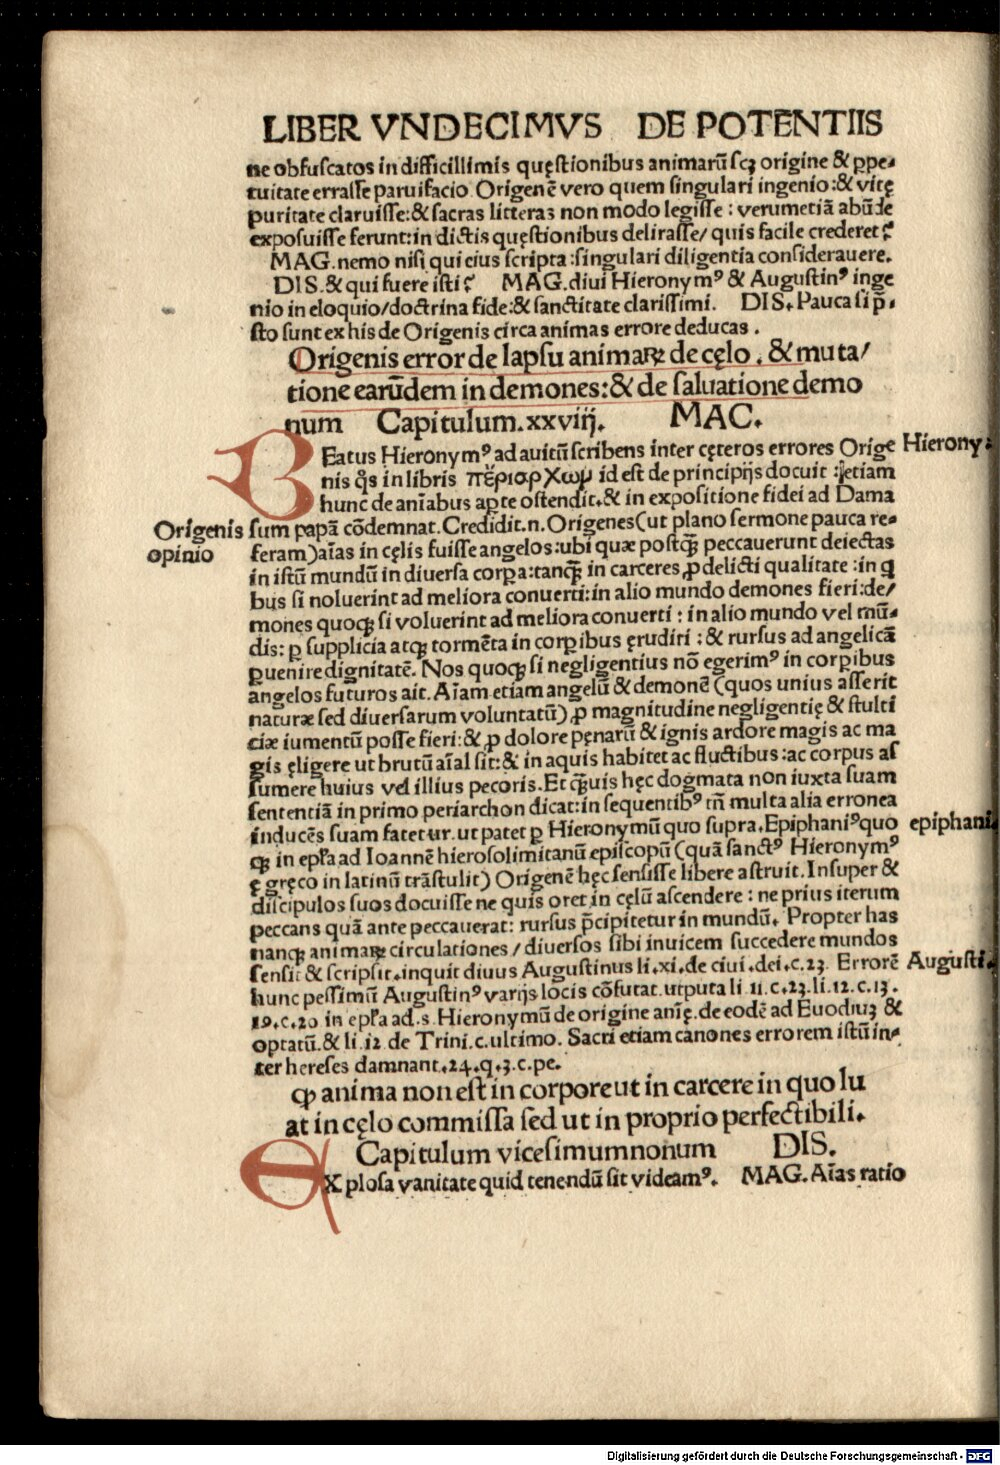 LIBER VNDECIMVS DE POTENTIIS
ne obfuscatos in difficillimis quęstionibus animarū scꝫ origine & ꝑpe-
tuitate errasse paruifacio Origenē vero quem singulari ingenio:& vitę
puritate claruisse:& sacras litteras non modo legisse : verumetiā abūde
exposuisse ferunt: in dictis quęstionibus delirasse/ quis facile crederet?
MAG. nemo nisi qui eius scripta :singulari diligentia considerauere.
DIS. & qui fuere isti? MAG. diui Hieronymꝰ & Augustinꝰ inge
nio in eloquio/doctrina fide:& sanctitate clarissimi. DIS. Pauca si p̄-
sto sunt ex his de Origenis circa animas errore deducas .
Origenis error de lapsu animaꝝ de cęlo . & muta/
tione earūdem in demones:& de saluatione demo
num Capitulum.xxviij. MAG.
BEatus Hieronymꝰ ad auitū scribens inter cęteros errores Orige
nis q̊s in libris πἔριαρχωμ id est de principijs docuit : etiam
hunc de aīabus aꝑte ostendit.& in expositione fidei ad Dama
sum papā cōdemnat. Credidit.n. Origenes(ut plano sermone pauca re-
feram)aīas in cęlis fuisse angelos:ubi quæ postꝙ̄ peccauerunt deiectas
in istū mundū in diuersa corꝑa:tanꝙ̄ in carceres ꝓ delicti qualitate :in q
bus si noluerint ad meliora conuerti: in alio mundo demones fieri:de/
mones quoqꝫ si voluerint ad meliora conuerti : in alio mundo vel mū-
dis: ꝑ supplicia atqꝫ tormēta in corꝑibus ęrudiri : & rursus ad angelicā
ꝑuenire dignitatē. Nos quoqꝫ si negligentius nō egerimꝰ in corꝑibus
angelos futuros ait. Aīam etiam angelū & demonē (quos unius asserit
naturæ sed diuersarum voluntatū) ꝓ magnitudine negligentię & stulti
ciæ iumentū posse fieri:& ꝓ dolore pęnarū & ignis ardore magis ac ma
gis ęligere ut brutū aīal sit:& in aquis habitet ac fluctibus :ac corpus as
sumere huius vel illius pecoris. Et ꝙ̄uis hęc dogmata non iuxta suam
sententiā in primo periarchon dicat: in sequentibꝰ tn̄ multa alia erronea
inducēs suam fatetur. ut patet ꝑ Hieronymū quo supra. Epiphaniꝰ quo
qꝫ in epl̄a ad Ioannē hierosolimitanū episcopū (quā sanctꝰ Hieronymꝰ
ę gręco in latinū trāstulit) Origenē hęc sensisse libere astruit. Insuper &
discipulos suos docuisse ne quis oret in cęlū ascendere : ne prius iterum
peccans quā ante peccauerat: rursus p̄cipitetur in mundū. Propter has
nanqꝫ animaꝝ circulationes / diuersos sibi inuicem succedere mundos
sensit & scripsit. inquit diuus Augustinus li.xi. de ciui.dei.c.23. Errorē
hunc pessimū Augustinꝰ varijs locis cōfutat. utputa li 11.c.23.li.12.c.13.
19.c.20 in epl̄a ad.s.Hieronymū de origine anię. de eodē ad Euodiuꝫ &
optatū.& li.12 de Trini.c.ultimo. Sacri etiam canones errorem istū in-
ter hereses damnant.24.q.3.c.pe.
ꝙ anima non est in corpore ut in carcere in quo lu
at in cęlo commissa sed ut in proprio perfectibili.
Capitulum vicesimumnonum DIS.
EX plosa vanitate quid tenendū sit videamꝰ. MAG. Aīas ratio
Hierony:
Origenis
opinio
epiphani
Augusti
Digitalisierung gefördert durch die Deutsche Forschungsgemeinschaft - DFG